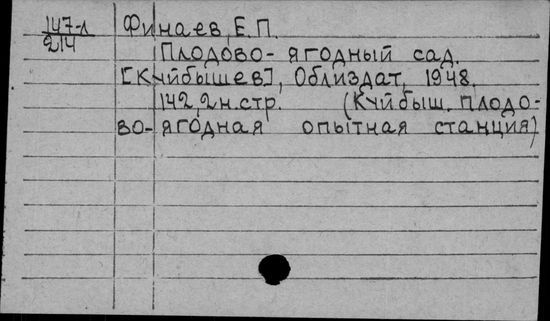 147-л
214
Финаев, Е.П.
Плодово-ягодный сад.
[Куйбышев], Облиздат, 1948.
142,2н.стр. (Куйбыш. плодо-
во-ягодная опытная станция)